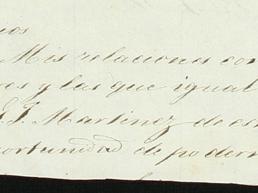 Mis relaciones con
es y las que igual
J. J. Martinez de es
portunidad de poderm